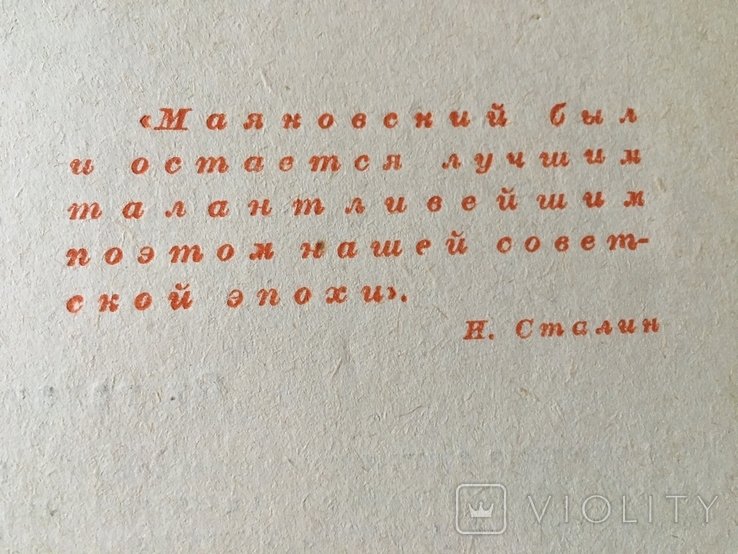 «Маяковский был
и остается лучшим
талантливейшим
поэтом нашей совет-
ской эпохи».
И. Сталин
VIOLITY